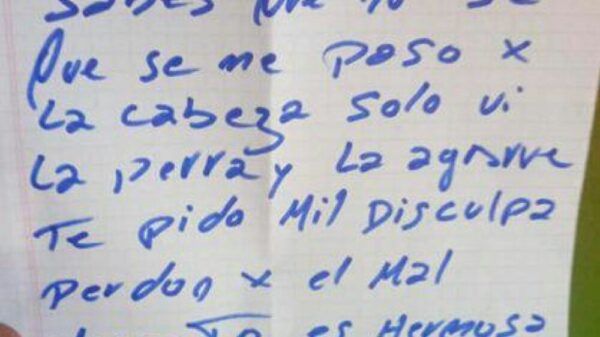 Sabes que no se
Que se me paso x
La cabeza solo vi
La perra y La agarre
Te pido Mil Disculpa
Perdon x el Mal
es Hermosa